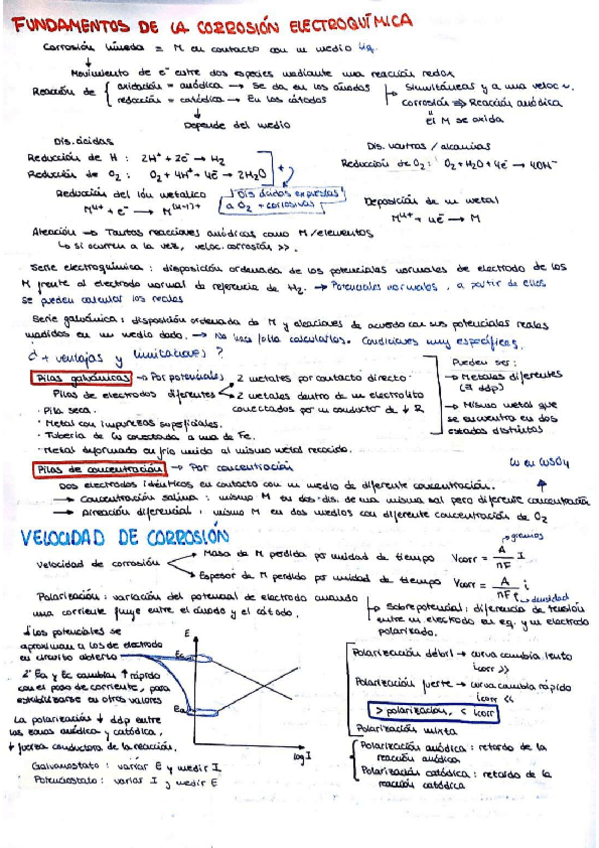 FUNDAMENTOS DE LA CORROSIÓN ELECTROQUÍMICA
Corrosión húmeda = M en contacto con un medio liq.
Movimiento de e⁻ entre dos especies mediante una reacción redox
Reacción de { oxidación = anódica → Se da en los ánodos
reducción = catódica → En los cátodos
Simultáneas y a una veloc ~.
Corrosión ⇒ Reacción anódica
El M se oxida
Depende del medio
Dis. ácidas
Dis. neutras / alcalinas
Reducción de H : 2H⁺ + 2e⁻ → H₂
Reducción de O₂ : O₂ + 4H⁺ + 4e → 2H₂O
Reducción de O₂ : O₂ + H₂O + 4e → 4OH⁻
Reducción del ión metálico
Dis ácidas expuestas
a O₂ + corrosivas
Deposición de un metal
Mⁿ⁺ + e⁻ → M⁽ⁿ⁻¹⁾⁺
Mⁿ⁺ + ne → M
Atención → Tantas reacciones anódicas como M/elementos
↳ si ocurren a la vez, veloc. corrosión >>.
Serie electroquímica : disposición ordenada de los potenciales normales de electrodo de los
M frente al electrodo normal de referencia de H₂. → Potenciales normales, a partir de ellos
se pueden calcular los reales
Serie galvánica : disposición ordenada de M y aleaciones de acuerdo con sus potenciales reales
medidos en un medio dado. → No hace falta calcularlos. Condiciones muy específicas.
¿ + ventajas y limitaciones ?
Pilas galvánicas → Por potenciales
Pilas de electrodos diferentes
2 metales por contacto directo
2 metales dentro de un electrolito
conectados por un conductor de ↓ R
Pueden ser :
→ Metales diferentes
(∃ ddp)
→ Mismo metal que
se encuentra en dos
estados distintos
· Pila seca.
· Metal con impurezas superficiales.
· Tubería de Cu conectada a una de Fe.
· Metal deformado en frío unido al mismo metal recocido.
Pilas de concentración → Por concentración
Cu en CuSO₄
Dos electrodos idénticos en contacto con un medio de diferente concentración.
→ Concentración salina : mismo M en dos dis. de una misma sal pero diferente concentración
→ Aireación diferencial : mismo M en dos medios con diferente concentración de O₂
VELOCIDAD DE CORROSIÓN
Velocidad de corrosión
Masa de M perdida por unidad de tiempo Vcorr = A/nF I
gramos
Espesor de M perdido por unidad de tiempo Vcorr = A/nFρ i
densidad
Polarización : variación del potencial de electrodo cuando
una corriente fluye entre el ánodo y el cátodo.
Sobrepotencial : diferencia de tensión
entre un electrodo en eq. y un electrodo
polarizado.
1º los potenciales se
aproximan a los de electrodo
en circuito abierto
2º Ea y Ec cambian ↑ rápido
con el paso de corriente, para
estabilizarse en otros valores
La polarización ↓ ddp entre
las zonas anódica y catódica,
↓ fuerza conductora de la reacción.
E
Ec
Ea
log I
Polarización débil → curva cambia lento
icorr >>
Polarización fuerte → curva cambia rápido
icorr <<
> polarización, < icorr
Polarización mixta
Polarización anódica : retardo de la
reacción anódica
Polarización catódica : retardo de la
reacción catódica
Galvanostato : variar E y medir I
Potenciostato : variar I y medir E